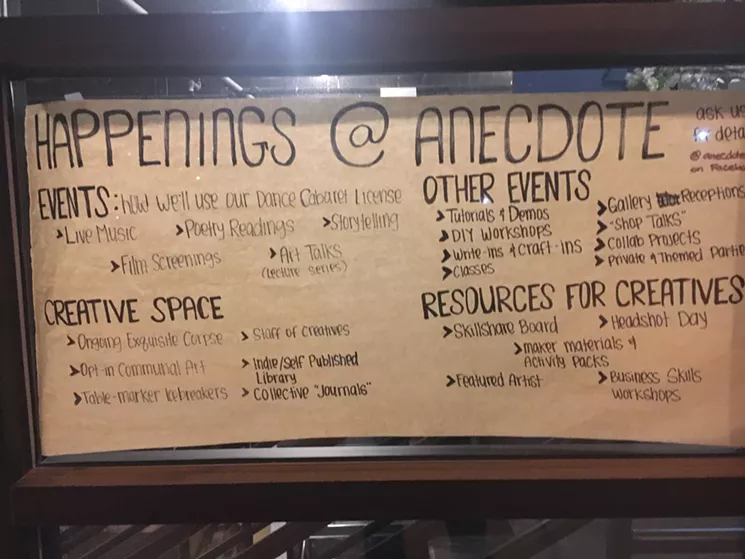 HAPPENINGS @ ANECDOTE
ask us
for
@anecdote
on
EVENTS: how we'll use our Dance Cabaret License
>Live Music >Poetry Readings >Storytelling
>Film Screenings >Art Talks
(lecture series)
OTHER EVENTS
>Tutorials & Demos
>DIY Workshops
>Write-ins & Craft-ins
>Classes
>Gallery Receptions
>"Shop Talks"
>Collab Projects
>Private & Themed
CREATIVE SPACE
>Ongoing Exquisite Corpse
>Opt-in Communal Art
>Table-marker Icebreakers
>Staff of Creatives
>Indie/Self Published
Library
>Collective "Journals"
RESOURCES FOR CREATIVES
>Skillshare Board >Headshot Day
>maker materials &
Activity Packs
>Featured Artist >Business Skills
Workshops